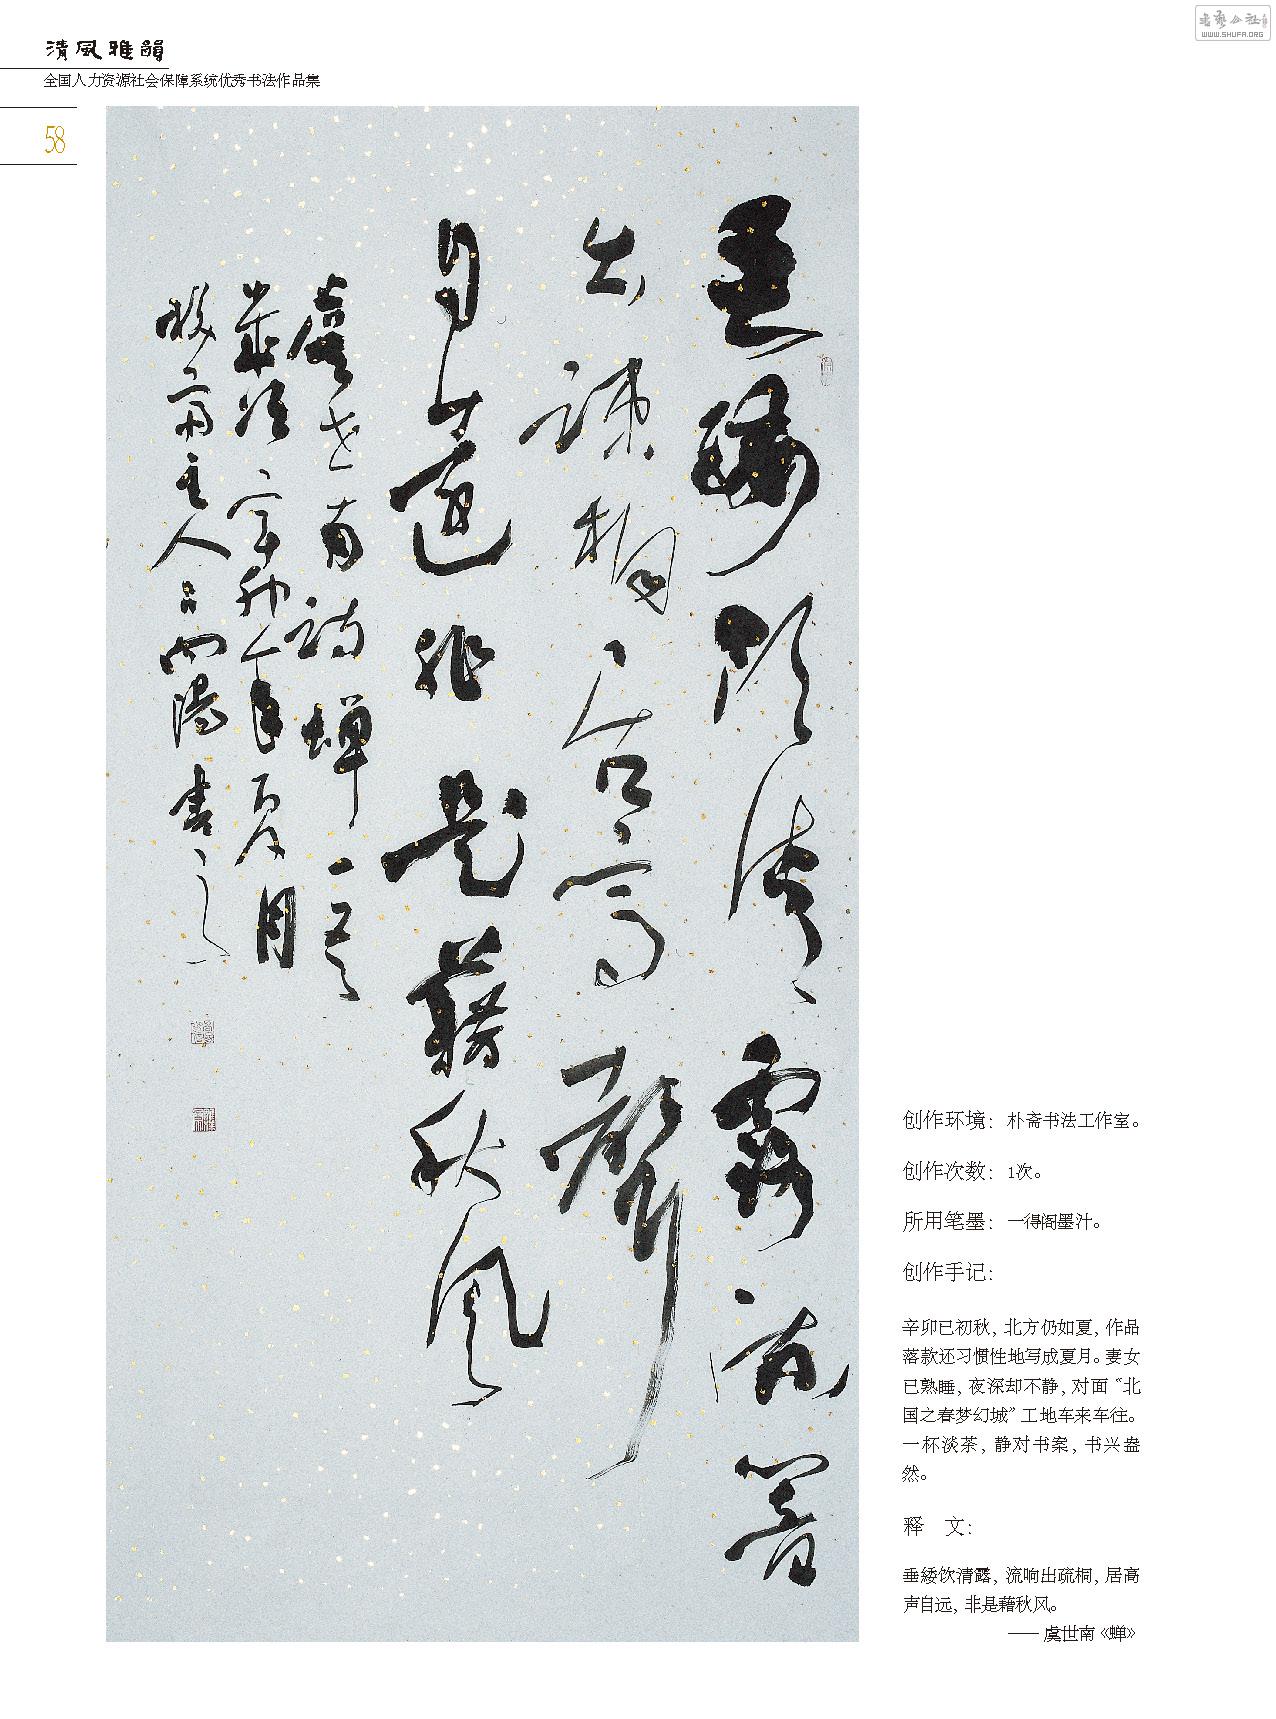 清風雅韻
全国人力资源社会保障系统优秀书法作品集
58
书艺公社
WWW.SHUFA.ORG
垂緌饮清露流响
出疎桐居高聲
自远非是藉秋风
虞世南詩蝉一首
辛卯年夏月
主人向陽書之
创作环境：朴斋书法工作室。
创作次数：1次。
所用笔墨：一得阁墨汁。
创作手记：
辛卯已初秋，北方仍如夏，作品
落款还习惯性地写成夏月。妻女
已熟睡，夜深却不静，对面“北
国之春梦幻城”工地车来车往。
一杯淡茶，静对书案，书兴盎
然。
释 文：
垂緌饮清露，流响出疏桐，居高
声自远，非是藉秋风。
——虞世南《蝉》